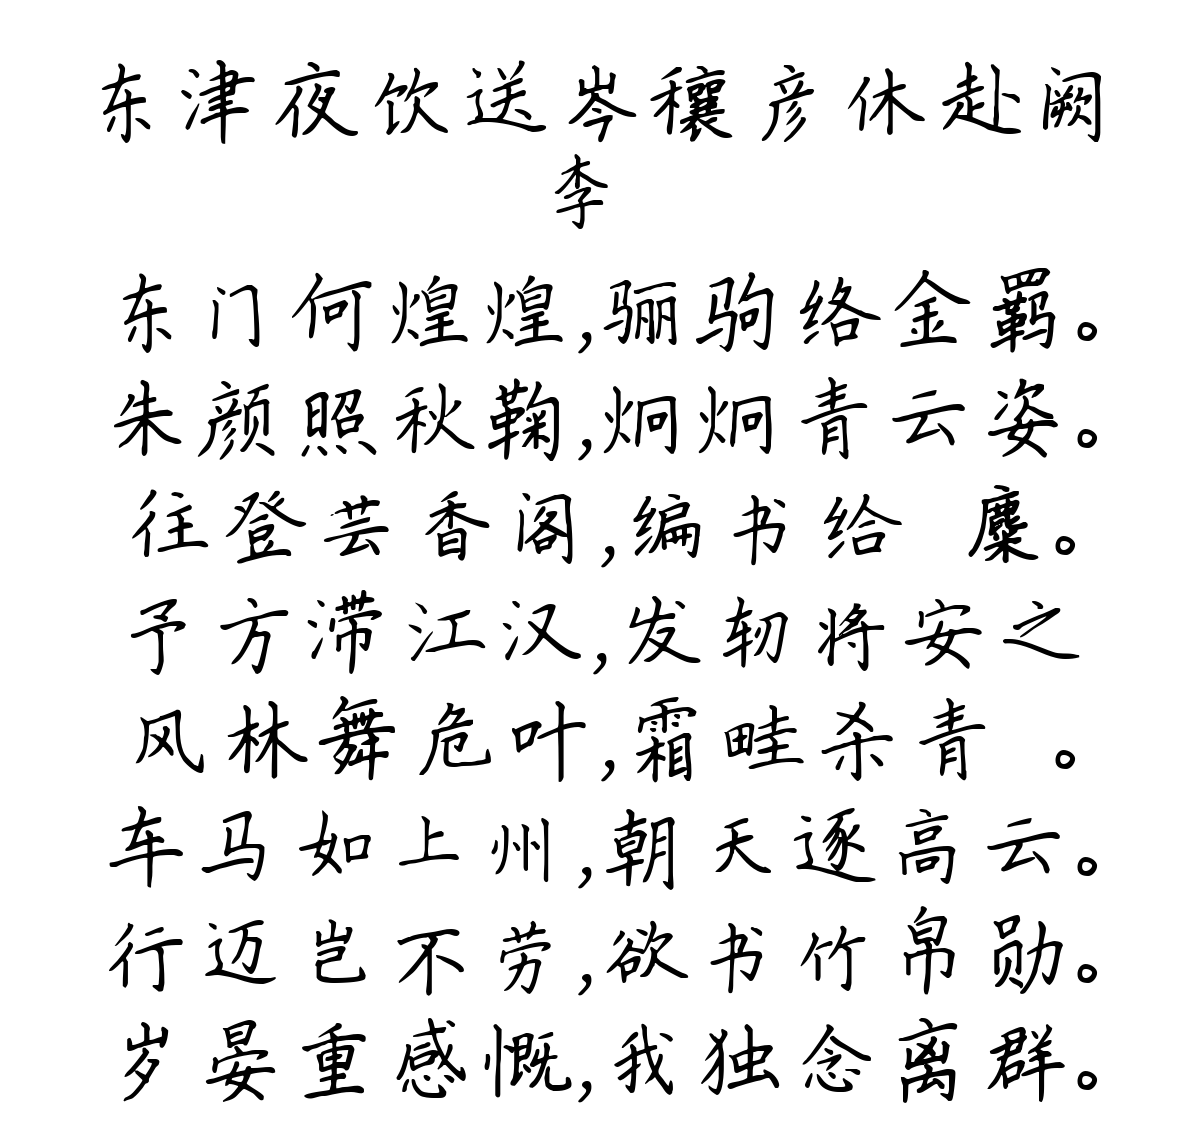 东津夜饮送岑穰彦休赴阙
李
东门何煌煌,骊驹络金羁。
朱颜照秋鞠,炯炯青云姿。
往登芸香阁,编书给 麋。
予方滞江汉,发轫将安之
风林舞危叶,霜畦杀青 。
车马如上州,朝天逐高云。
行迈岂不劳,欲书竹帛勋。
岁晏重感慨,我独念离群。